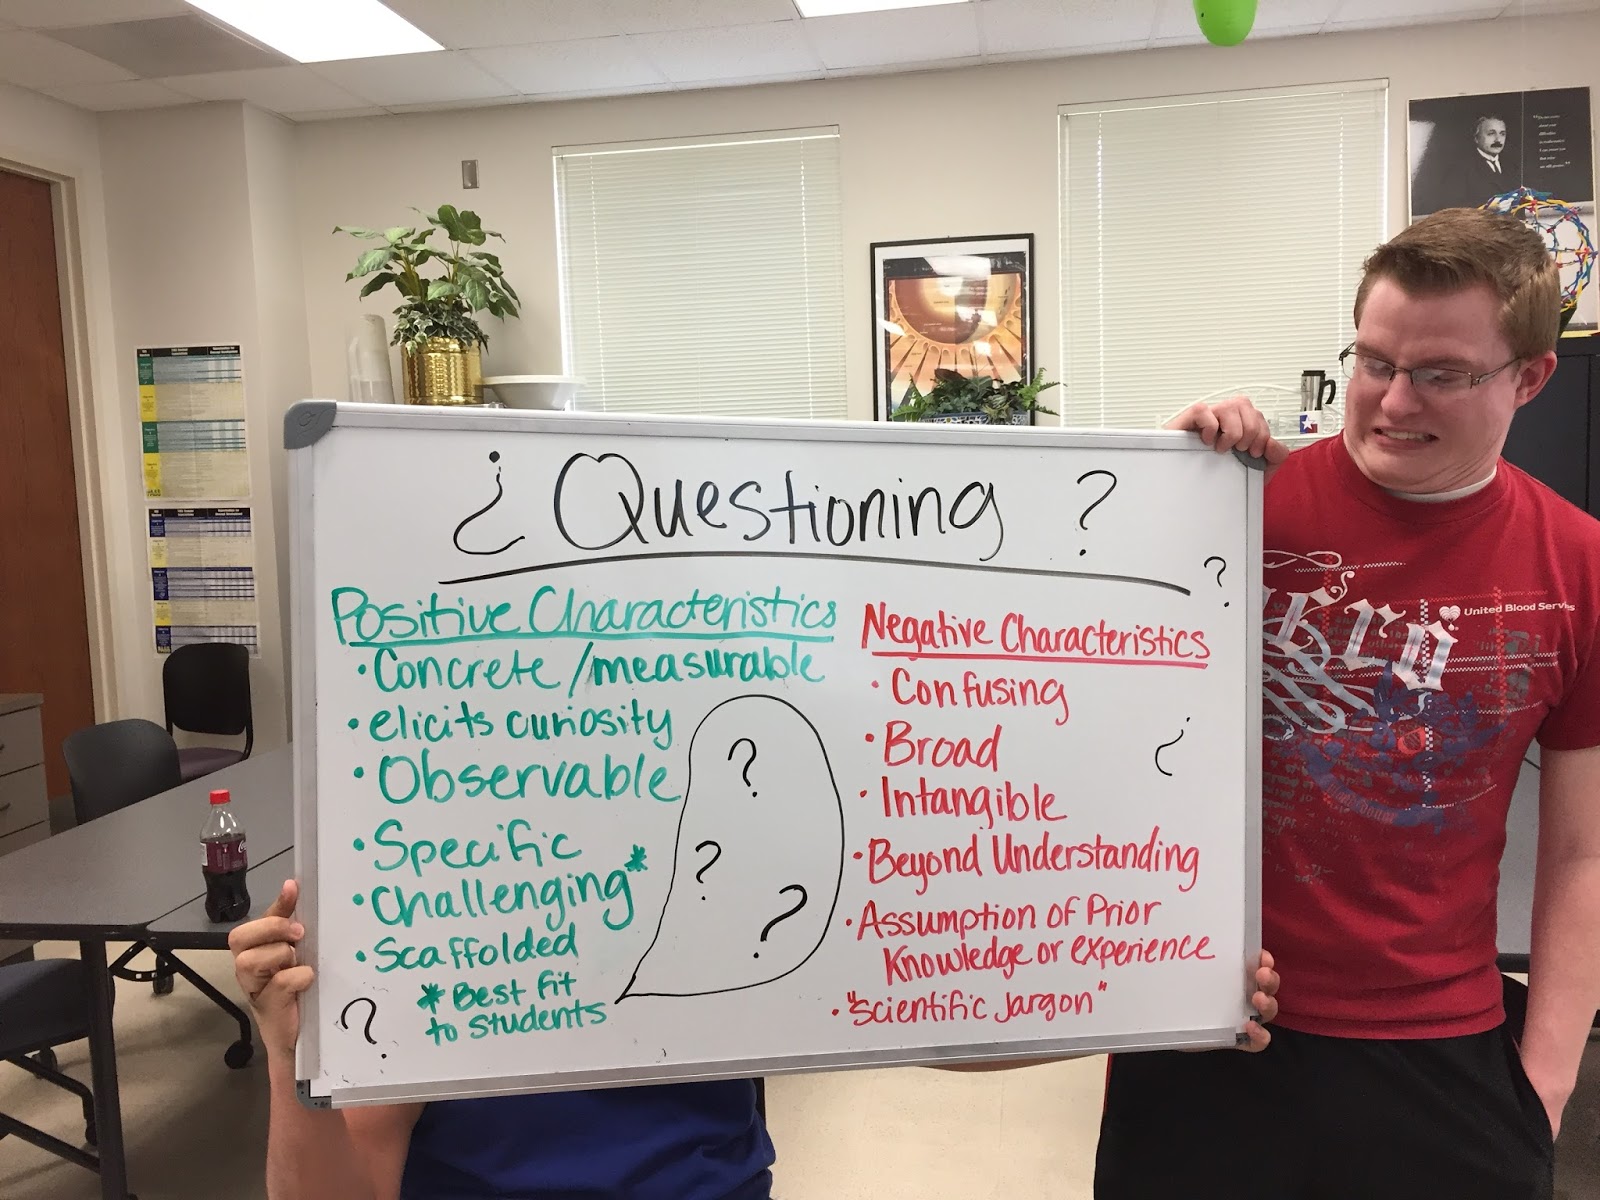 ¿ Questioning ?
?
Positive Characteristics
• Concrete/measurable
• elicits curiosity
• Observable
• Specific
• Challenging*
• Scaffolded
* Best fit
to students
?
?
?
?
Negative Characteristics
• Confusing
• Broad
• Intangible
¿
• Beyond Understanding
• Assumption of Prior
Knowledge or experience
• "Scientific Jargon"
United Blood Services